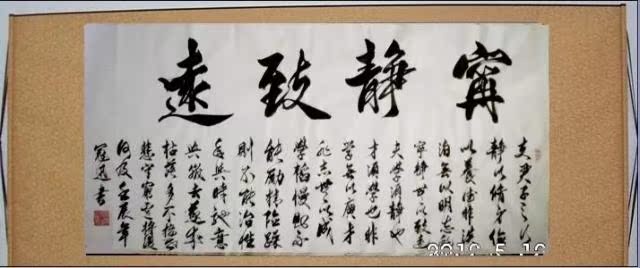 寧靜致遠
夫君子之行
靜以修身儉
以養德非淡
泊無以明志非
寧靜無以致遠
夫學須靜也
才須學也非
學無以廣才
非志無以成
學慆慢則不
能勵精險躁
則不能冶性
年與時馳意
與歲去遂成
枯落多不接世
悲守窮廬將復
何及 壬辰年
書